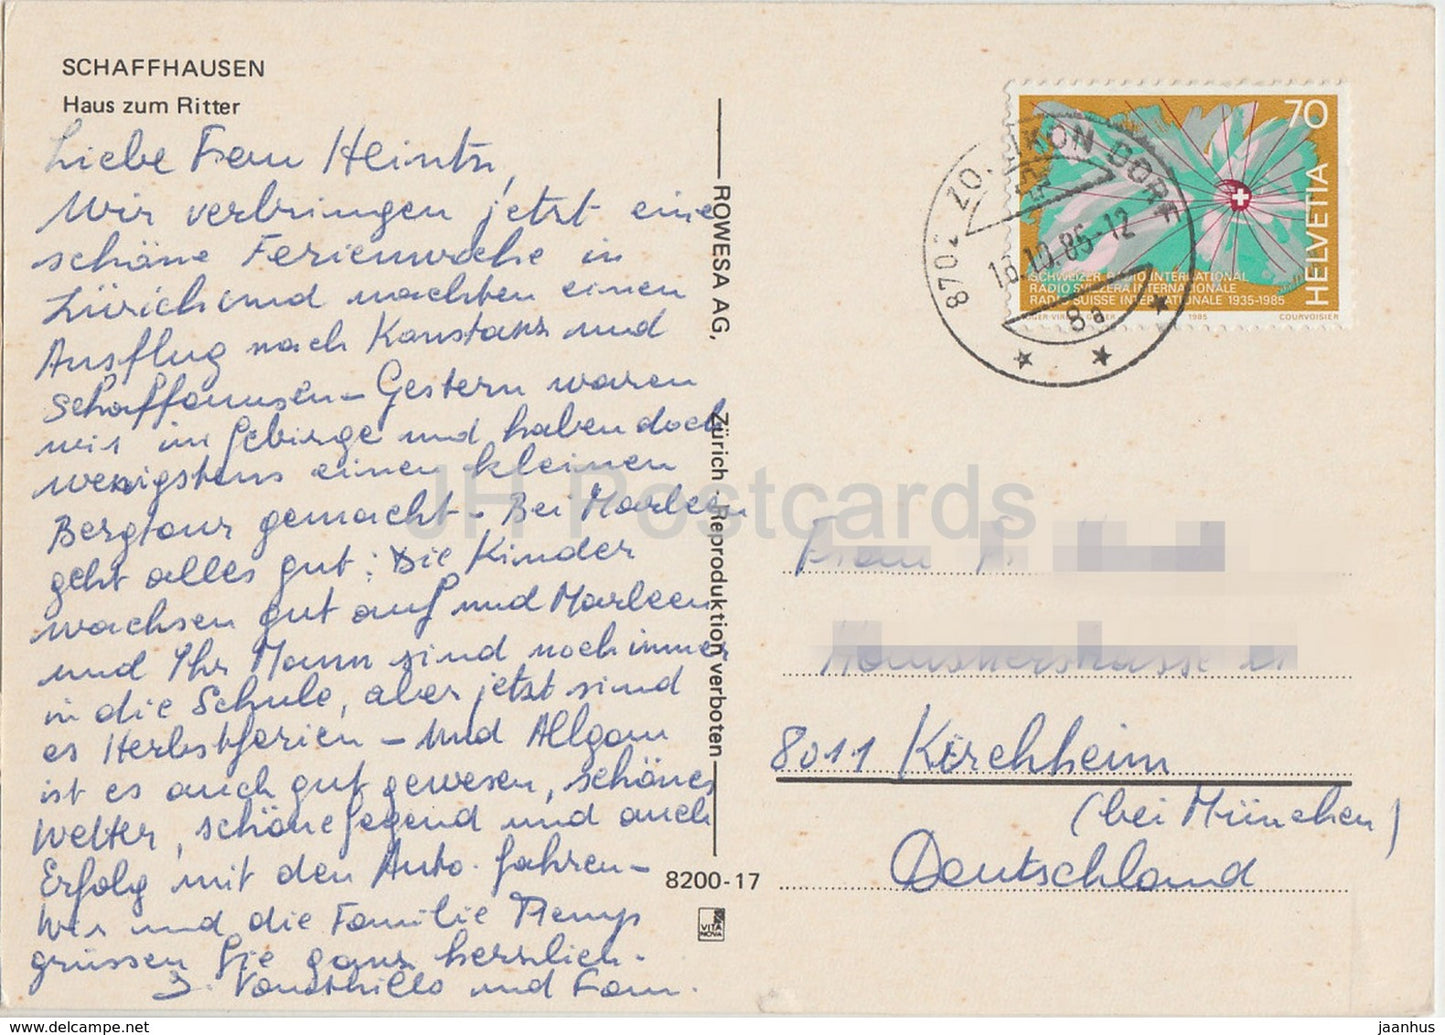 SCHAFFHAUSEN
Haus zum Ritter
Liebe Frau Heintz,
Wir verbringen jetzt eine
schöne Ferienwoche in
Zürich und machten einen
Ausflug nach Konstanz und
Schaffhausen - Gestern waren
wir im Gebirge und haben doch
wenigstens einen kleinen
Bergtour gemacht - Bei Marleen
geht alles gut: Die Kinder
wachsen gut auf und Marleen
und Ihr Mann sind noch immer
in die Schule, aber jetzt sind
es Herbstferien - und Allgem
ist es auch gut gewesen, schönes
Wetter, schöne Gegend und auch
Erfolg mit den Auto-fahren -
Wir und die Familie
grüssen Sie ganz herzlich -
und Fam.
ROWESA AG, Zürich · Reproduktion verboten
8200-17
VITA
NOVA
70
HELVETIA
SCHWEIZER RADIO INTERNATIONAL
RADIO SVIZZERA INTERNATIONALE
RADIO SUISSE INTERNATIONALE 1935-1985
1985
COURVOISIER
ZOLLIKON DORF
10.85-12
8a
Frau
8011 Kirchheim
(bei München)
Deutschland
JH Postcards
delcampe.net
jaanhus